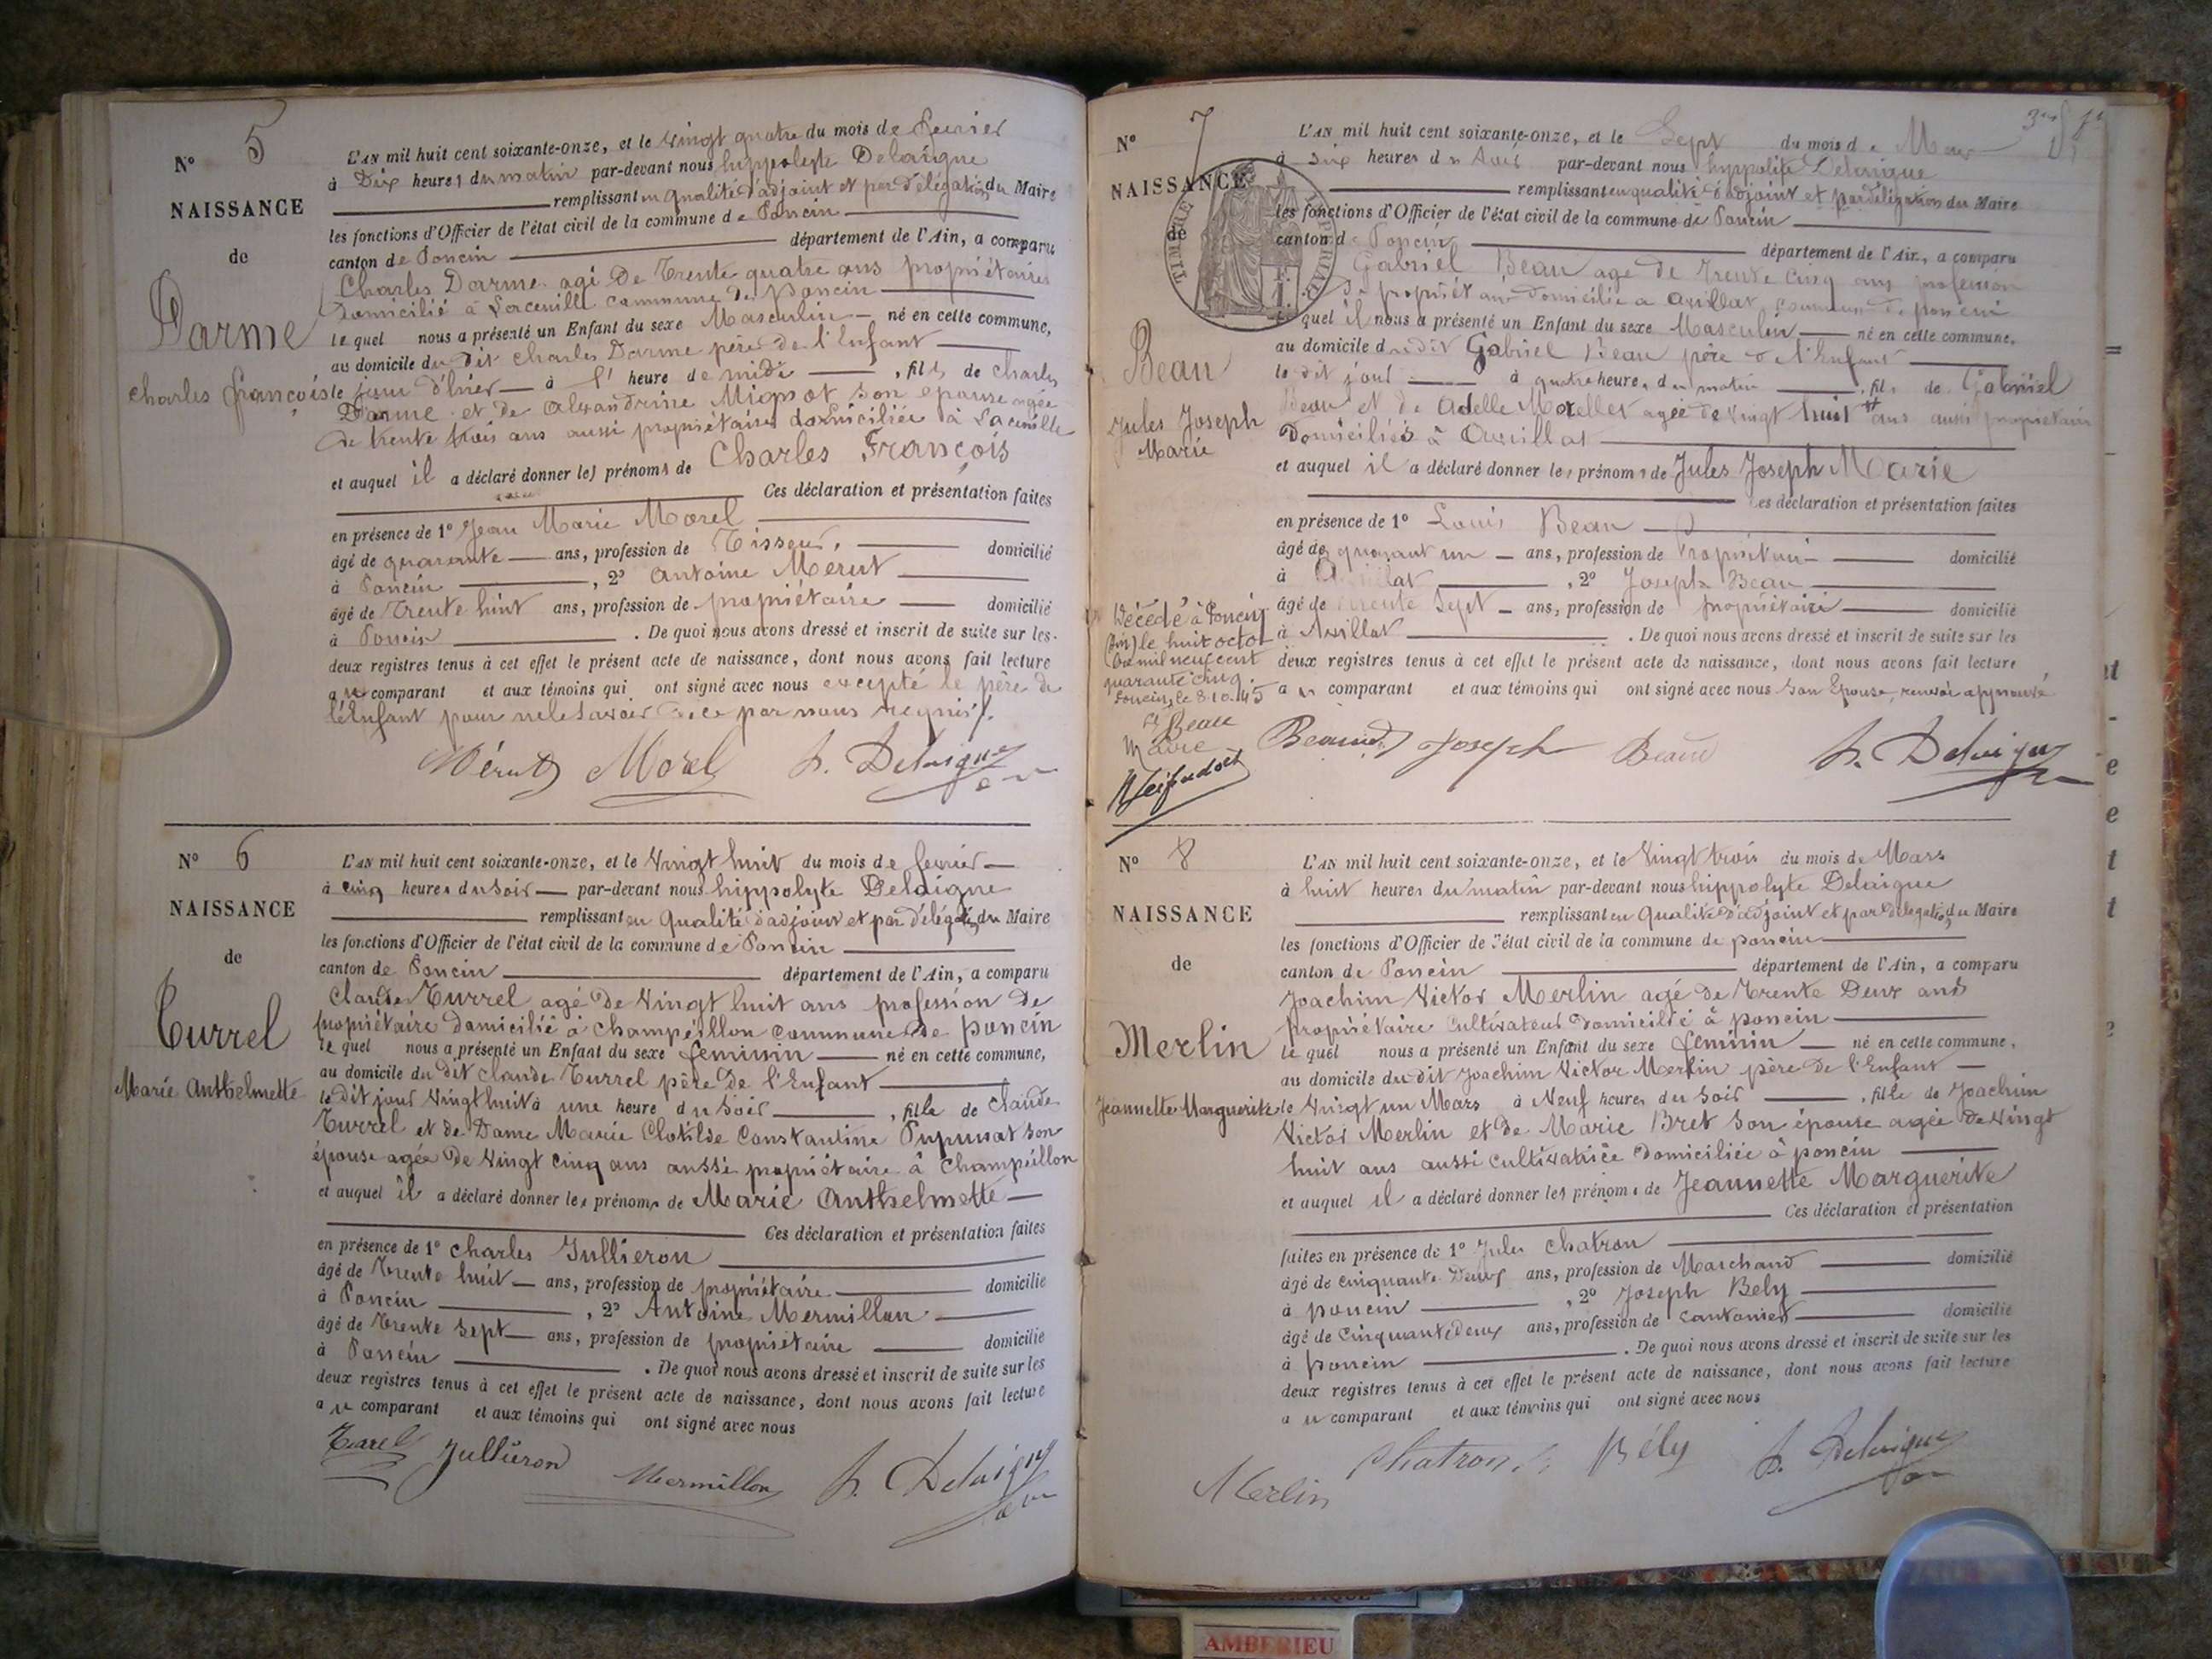 N° 5
NAISSANCE
de
Darme
Charles françois
L'AN mil huit cent soixante-onze, et le vingt quatre du mois de fevrier
à Dix heures du matin par-devant nous hippolyte Delaigne
remplissant en qualité d'adjoint et par délégation du Maire
les fonctions d'Officier de l'état civil de la commune de Poncin
canton de Poncin département de l'Ain, a comparu
Charles Darme agé De Trente quatre ans propriétaires
Domicilié à commune De Poncin
le quel nous a présenté un Enfant du sexe Masculin né en cette commune,
au domicile du Dit Charles Darme père de l'Enfant
le jour d'hier à l' heure de midi , fils de Charles
Darme et de Alexandrine Mignot son épouse agée
de trente trois ans aussi propriétaires domiciliée à
et auquel il a déclaré donner les prénoms de Charles François
Ces déclaration et présentation faites
en présence de 1° Jean Marie Morel
âgé de quarante ans, profession de Tisseur, domicilié
à Poncin , 2° Antoine Merut
âgé de Trente huit ans, profession de propriétaire domicilié
à Poncin . De quoi nous avons dressé et inscrit de suite sur les
deux registres tenus à cet effet le présent acte de naissance, dont nous avons fait lecture
au comparant et aux témoins qui ont signé avec nous excepté le père de
l'Enfant pour ne le savoir De ce par nous requis.
Mérut Morel h. Delaigne
N° 6
NAISSANCE
de
Turrel
Marie Anthelmette
L'AN mil huit cent soixante-onze, et le Vingt huit du mois de fevrier
à cinq heures du soir par-devant nous hippolyte Delaigne
remplissant en Qualité d'adjoint et par délégation du Maire
les fonctions d'Officier de l'état civil de la commune de Poncin
canton de Poncin département de l'Ain, a comparu
Claude Turrel agé De Vingt huit ans profession de
propriétaire domicilié à Champeillon Commune de poncin
le quel nous a présenté un Enfant du sexe feminin né en cette commune,
au domicile du dit Claude Turrel père De l'Enfant
le Dit jour Vingt huit à une heure du Soir , fille de Claude
Turrel et de Dame Marie Clotilde Constantine Pupunat son
épouse agée De Vingt cinq ans aussi propriétaire à Champeillon
et auquel il a déclaré donner les prénoms de Marie Anthelmette
Ces déclaration et présentation faites
en présence de 1° Charles Jullieron
âgé de Trente huit ans, profession de propriétaire domicilié
à Poncin , 2° Antoine Mermillon
âgé de Trente Sept ans, profession de propriétaire domicilié
à Poncin . De quoi nous avons dressé et inscrit de suite sur les
deux registres tenus à cet effet le présent acte de naissance, dont nous avons fait lecture
au comparant et aux témoins qui ont signé avec nous
Turel Jullieron Mermillon h. Delaigne
N° 7
NAISSANCE
de
TIMBRE IMPERIAL
Beau
Jules Joseph
Marie
Décédé à Poncin
(Ain) le huit octo
bre mil neuf cent
quarante cinq.
Poncin, le 8.10.45
Maire
L'AN mil huit cent soixante-onze, et le Sept du mois de Mars
à Six heures du Soir par-devant nous hyppolite Delaigne
remplissant en qualité d'adjoint et par délégation du Maire
les fonctions d'Officier de l'état civil de la commune de Poncin
canton de Poncin département de l'Ain, a comparu
Gabriel Beau agé de Trente Cinq ans profession
De propriétaire Domicilié a Avrillat, commune de poncin
le quel il nous a présenté un Enfant du sexe Masculin né en cette commune,
au domicile du dit Gabriel Beau père de l'Enfant
le dit jour à quatre heures du matin , fils de Gabriel
Beau et de Adelle Morellet agée de vingt huit ans aussi propriétaire
Domiciliés à Avrillat
et auquel il a déclaré donner les prénoms de Jules Joseph Marie
Ces déclaration et présentation faites
en présence de 1° Louis Beau
âgé de quarant un ans, profession de Propriétaire domicilié
à Avrillat , 2° Joseph Beau
âgé de trente Sept ans, profession de propriétaire domicilié
à Avrillat . De quoi nous avons dressé et inscrit de suite sur les
deux registres tenus à cet effet le présent acte de naissance, dont nous avons fait lecture
au comparant et aux témoins qui ont signé avec nous Son Epouse, renvoi approuvé
Joseph Beau h. Delaigne
N° 8
NAISSANCE
de
Merlin
Jeannette Marguerite
L'AN mil huit cent soixante-onze, et le Vingt trois du mois de Mars
à huit heures du matin par-devant nous hippolyte Delaigue
remplissant en Qualité d'adjoint et par délégation du Maire
les fonctions d'Officier de l'état civil de la commune de poncin
canton de Poncin département de l'Ain, a comparu
Joachim Victor Merlin agé de Trente Deux ans
propriétaire Cultivateur Domicilié à poncin
le quel nous a présenté un Enfant du sexe feminin né en cette commune,
au domicile du dit Joachim Victor Merlin père De l'Enfant
le Vingt un Mars à Neuf heures du Soir , fille de Joachim
Victor Merlin et de Marie Bret Son épouse agée De Vingt
huit ans aussi cultivatrice Domiciliée à poncin
et auquel il a déclaré donner les prénoms de Jeannette Marguerite
Ces déclaration et présentation
faites en présence de 1° Jules Chatron
âgé de Cinquante Deux ans, profession de Marchand domicilié
à poncin , 2° Joseph Bely
âgé de Cinquante deux ans, profession de Cantonier domicilié
à poncin . De quoi nous avons dressé et inscrit de suite sur les
deux registres tenus à cet effet le présent acte de naissance, dont nous avons fait lecture
au comparant et aux témoins qui ont signé avec nous
Merlin Chatron Bély h. Delaigue
AMBERIEU